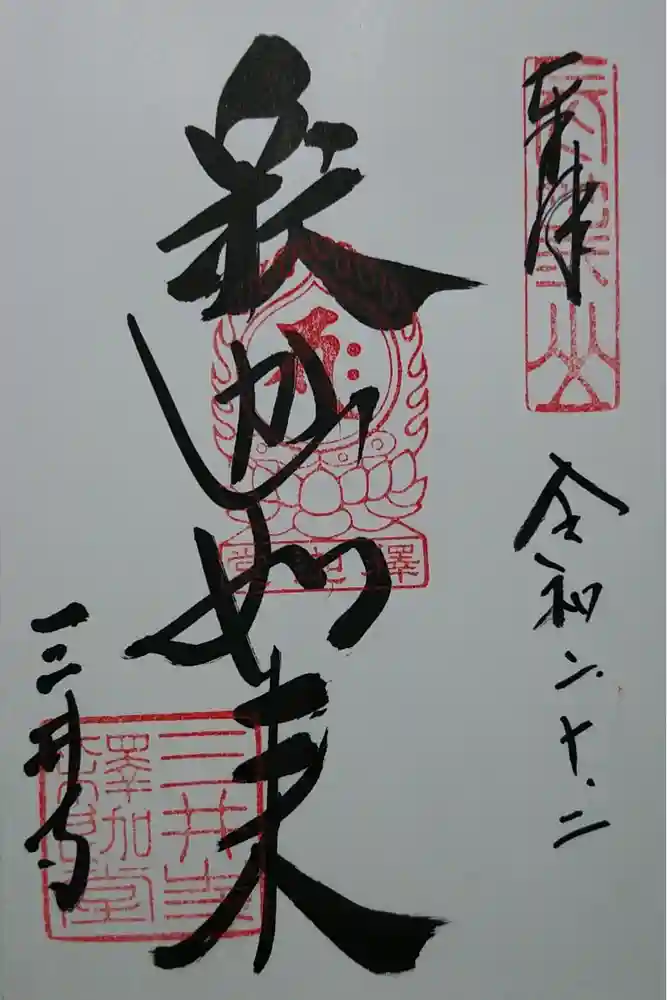 奉拝
長等山
令和二.十.二
釈迦如来
釋迦堂
三井寺
三井寺
釋迦堂